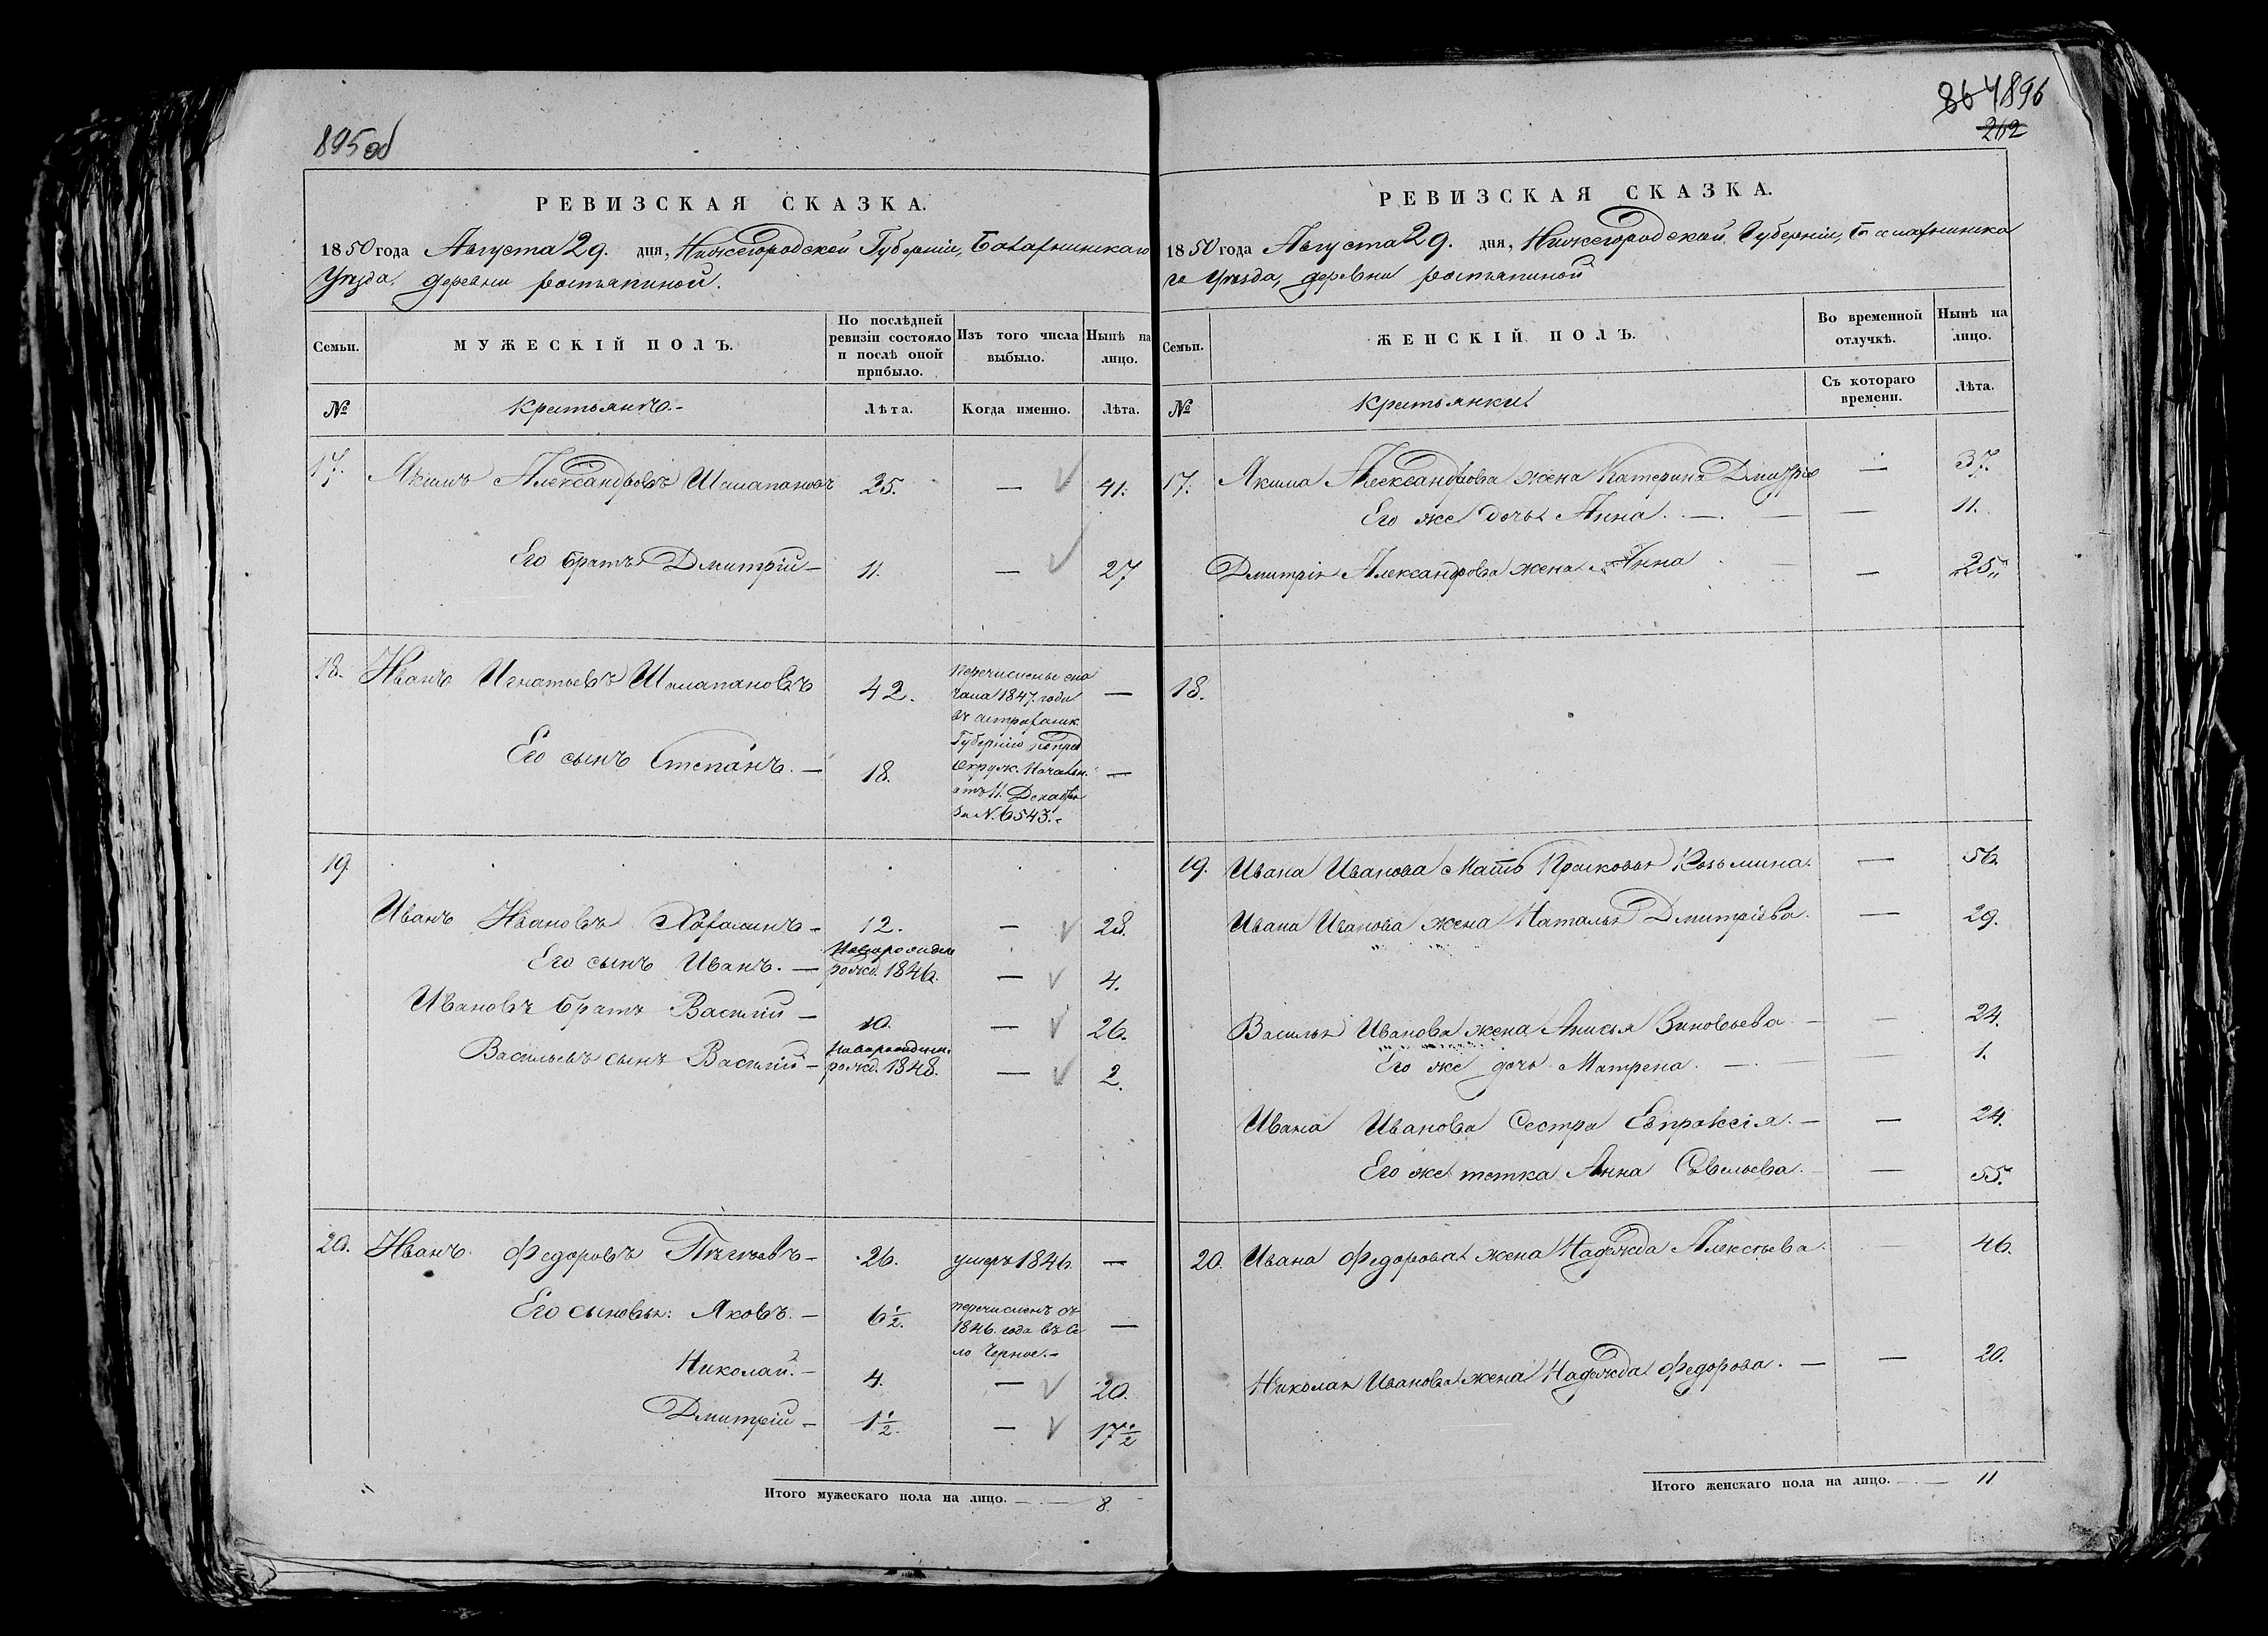 895 об
РЕВИЗСКАЯ СКАЗКА.
1850 года Августа 29. дня, Нижегородской Губерніи, Балахнинскаго
Уѣзда, деревни Ростяпиной.
Семьи.
МУЖЕСКІЙ ПОЛЪ.
По послѣдней ревизіи состояло и послѣ оной прибыло.
Изъ того числа выбыло.
Нынѣ на лицо.
№
Крестьянъ.-
Лѣта.
Когда именно.
Лѣта.
17. Якимъ Александровъ 25. — 41.
Его братъ Дмитрій — 11. — 27
18. Иванъ Игнатьевъ 42. —
Его сынъ Степанъ. — 18. —
Перечислены сна
чала 1847. года
въ Астраханск.
Губернію по пред
Окруж. Начальн.
отъ 11. Декабря
За №. 6543.-
19.
Иванъ Ивановъ — 12. — 28.
Его сынъ Иванъ. — Новорожден рожд. 1846. — 4.
Ивановъ братъ Василій — 10. — 26.
Васильевъ сынъ Василій — Новорожден. рожд. 1848. — 2.
20. Иванъ Федоровъ — 26. умеръ 1846. —
Его сыновья: Яковъ. — 6½. перечисленъ съ 1846. года въ Се ло Черное.- —
Николай. — 4. — 20.
Дмитрій — 1½. — 17½
Итого мужескаго пола на лицо. — 8.
864 896
262
РЕВИЗСКАЯ СКАЗКА.
1850 года Августа 29. дня, Нижегородской Губерніи, Балахнинска
го Уѣзда, деревни Ростяпиной
Семьи.
ЖЕНСКІЙ ПОЛЪ.
Во временной отлучкѣ.
Нынѣ на лицо.
№
Крестьянки
Съ котораго времени.
Лѣта.
17. Якима Александрова жена Катерина Дмитріе — 37.
Его же дочь Анна. — — 11.
Дмитрія Александрова жена Анна — 25.
18.
19. Ивана Иванова Мать Прасковья Козьмина. — 56.
Ивана Иванова жена Наталья Дмитріева. — 29.
Василья Иванова жена Анисья Зиновьева — — 24.
Его же дочь Матрена. — — 1.
Ивана Иванова Сестра Евпраксія. — — 24.
Его же тетка Анна Савельева. — 55.
20. Ивана Федорова жена Надежда Алексѣева. — 46.
Николая Иванова жена Надежда Федорова. — — 20.
Итого женскаго пола на лицо. — 11